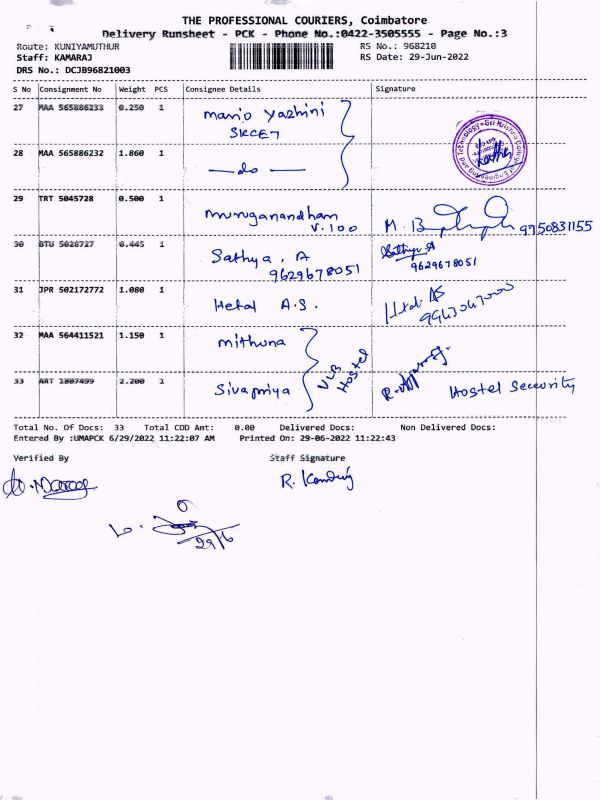 THE PROFESSIONAL COURIERS, Coimbatore
Delivery Runsheet - PCK - Phone No.:0422-3505555 - Page No.:3
Route: KUNIYAMUTHUR RS No.: 968210
Staff: KAMARAJ RS Date: 29-Jun-2022
DRS No.: DCJB96821003
S No Consignment No Weight PCS Consignee Details Signature
27 MAA 565886233 0.250 1 Manio Yazhini
SKCET
28 MAA 565886232 1.860 1 —do—
Sri Krishna College of Engineering and Technology
29 TRT 5045728 0.500 1 Muruganandham
V.100 M. B 9750831155
30 BTU 5028727 0.445 1 Sathya. A Sathya A
9629678051 9629678051
31 JPR 502172772 1.080 1 Hetal A.S.
32 MAA 564411521 1.150 1 Mithuna
VLB Hostel
33 ART 1807499 2.200 1 Sivapriya Hostel Security
Total No. Of Docs: 33 Total COD Amt: 0.00 Delivered Docs: Non Delivered Docs:
Entered By :UMAPCK 6/29/2022 11:22:07 AM Printed On: 29-06-2022 11:22:43
Verified By Staff Signature
29/6